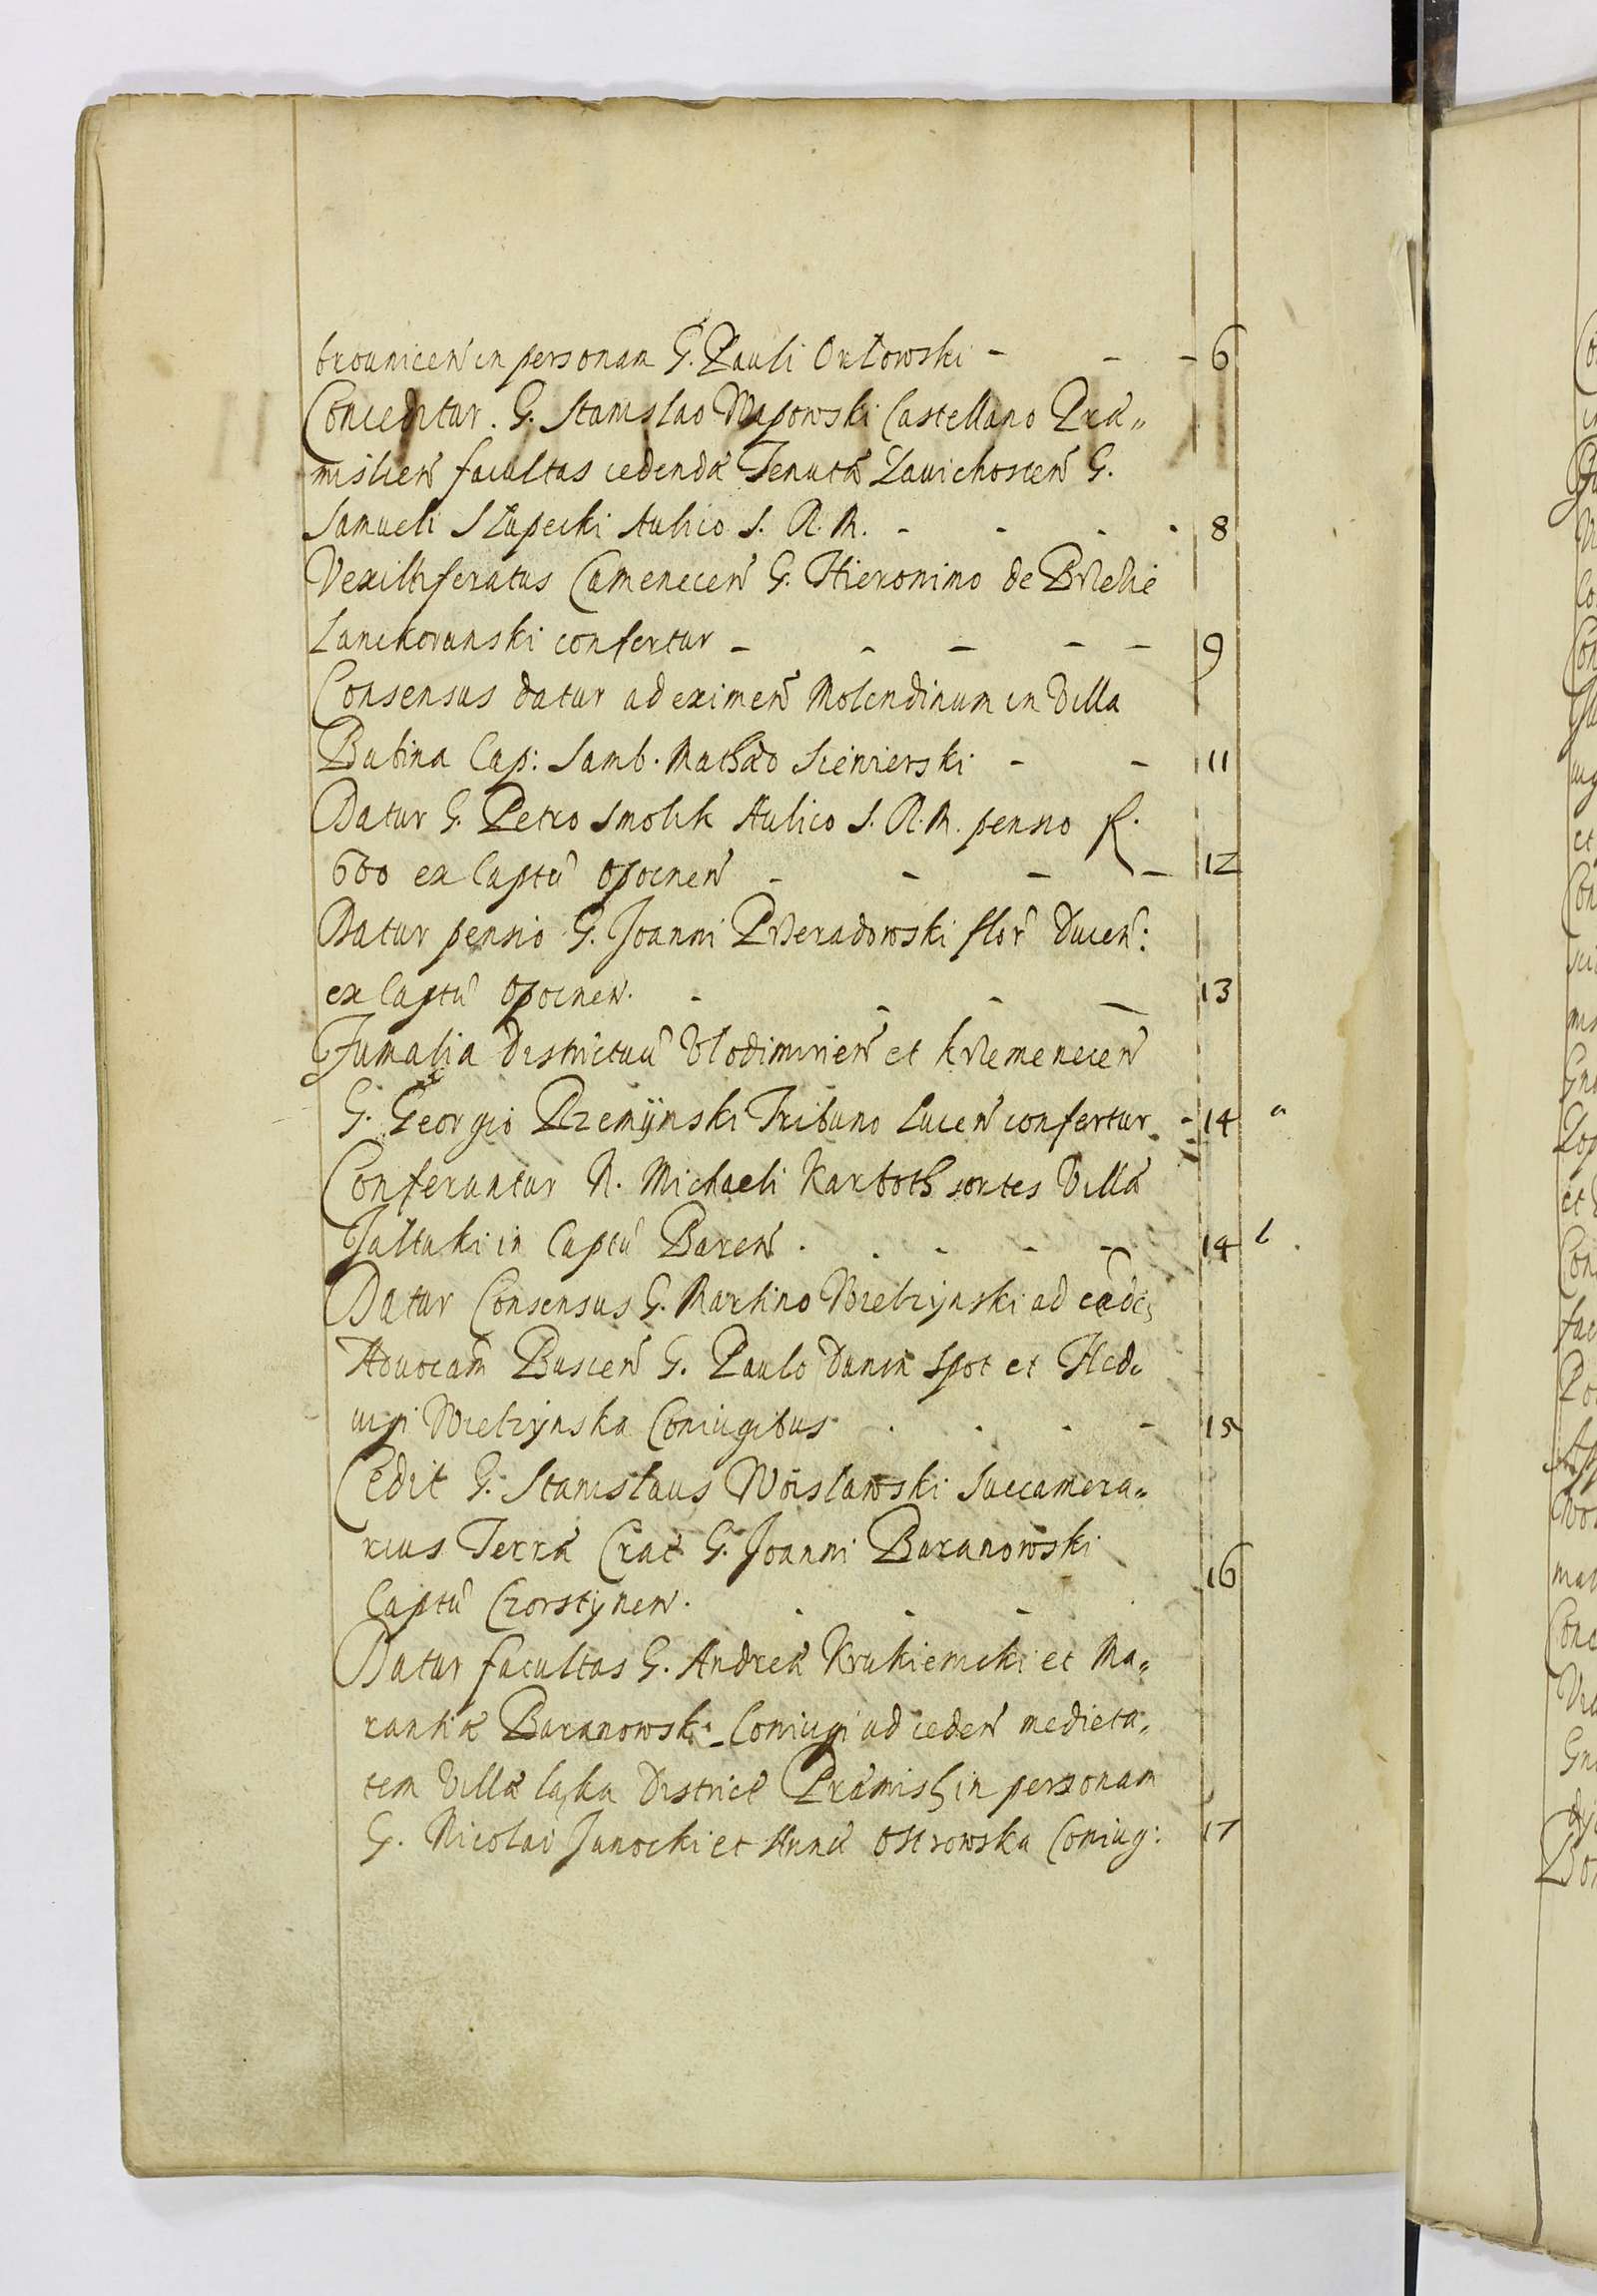 brounicen̄ in personam G. Pauli Orłowski - - - 6
Conceditur. G. Stanislao Wapowski Castellano Præ„
mislien̄ facultas cedendæ Tenutæ Zauichoscen̄ G.
Samueli Słupecki Aulico S. R. M. - - - - 8
Vexilliferatus Camenecen̄ G. Hieronimo de Brzezie
Lanckoranski confertur - - - - - 9
Consensus datur ad eximen̄ Molendinum in Villa
Babina Cap: Samb. Mathæo Scienierski - - 11
Datur G. Petro Smolik Aulico S. R. M. pensio fl.
600 ex Captū Opocnen̄ - - - - 12
Datur pensio G. Joanni Przeradowski flor̄ Ducen̄:
ex Captū Opocnen. - - - - 13
Fumalia Districtuū Vlodimirien̄ et Krzemenecen̄
G. Georgio Przemÿnski Tribuno Lucen̄ confertur. - 14 a
Conferuntur N. Michaeli Karboth sortes Villæ
Jaltuki in Captū Baren̄ . . - - - 14 b.
Datur Consensus G. Martino Wielzynski ad cædē
Aduocam̄ Buscen̄ G. Paulo Dunin Spot et Hed„
uigi Wielzynska Coniugibus . . . - 15
Cedit G. Stanislaus Woislawski Succamera„
rius Terræ Crac̄ G. Joanni Baranowski
Captū Czorstynen. - - - 16
Datur facultas G. Andreæ Krukienicki et Ma„
rantiæ Baranowski Coniugi ad ceden̄ medieta„
tem Villæ Łąka District̄ Præmisl̄ in personam
G. Nicolai Janocki et Annæ Ostrowska Coniug: 17